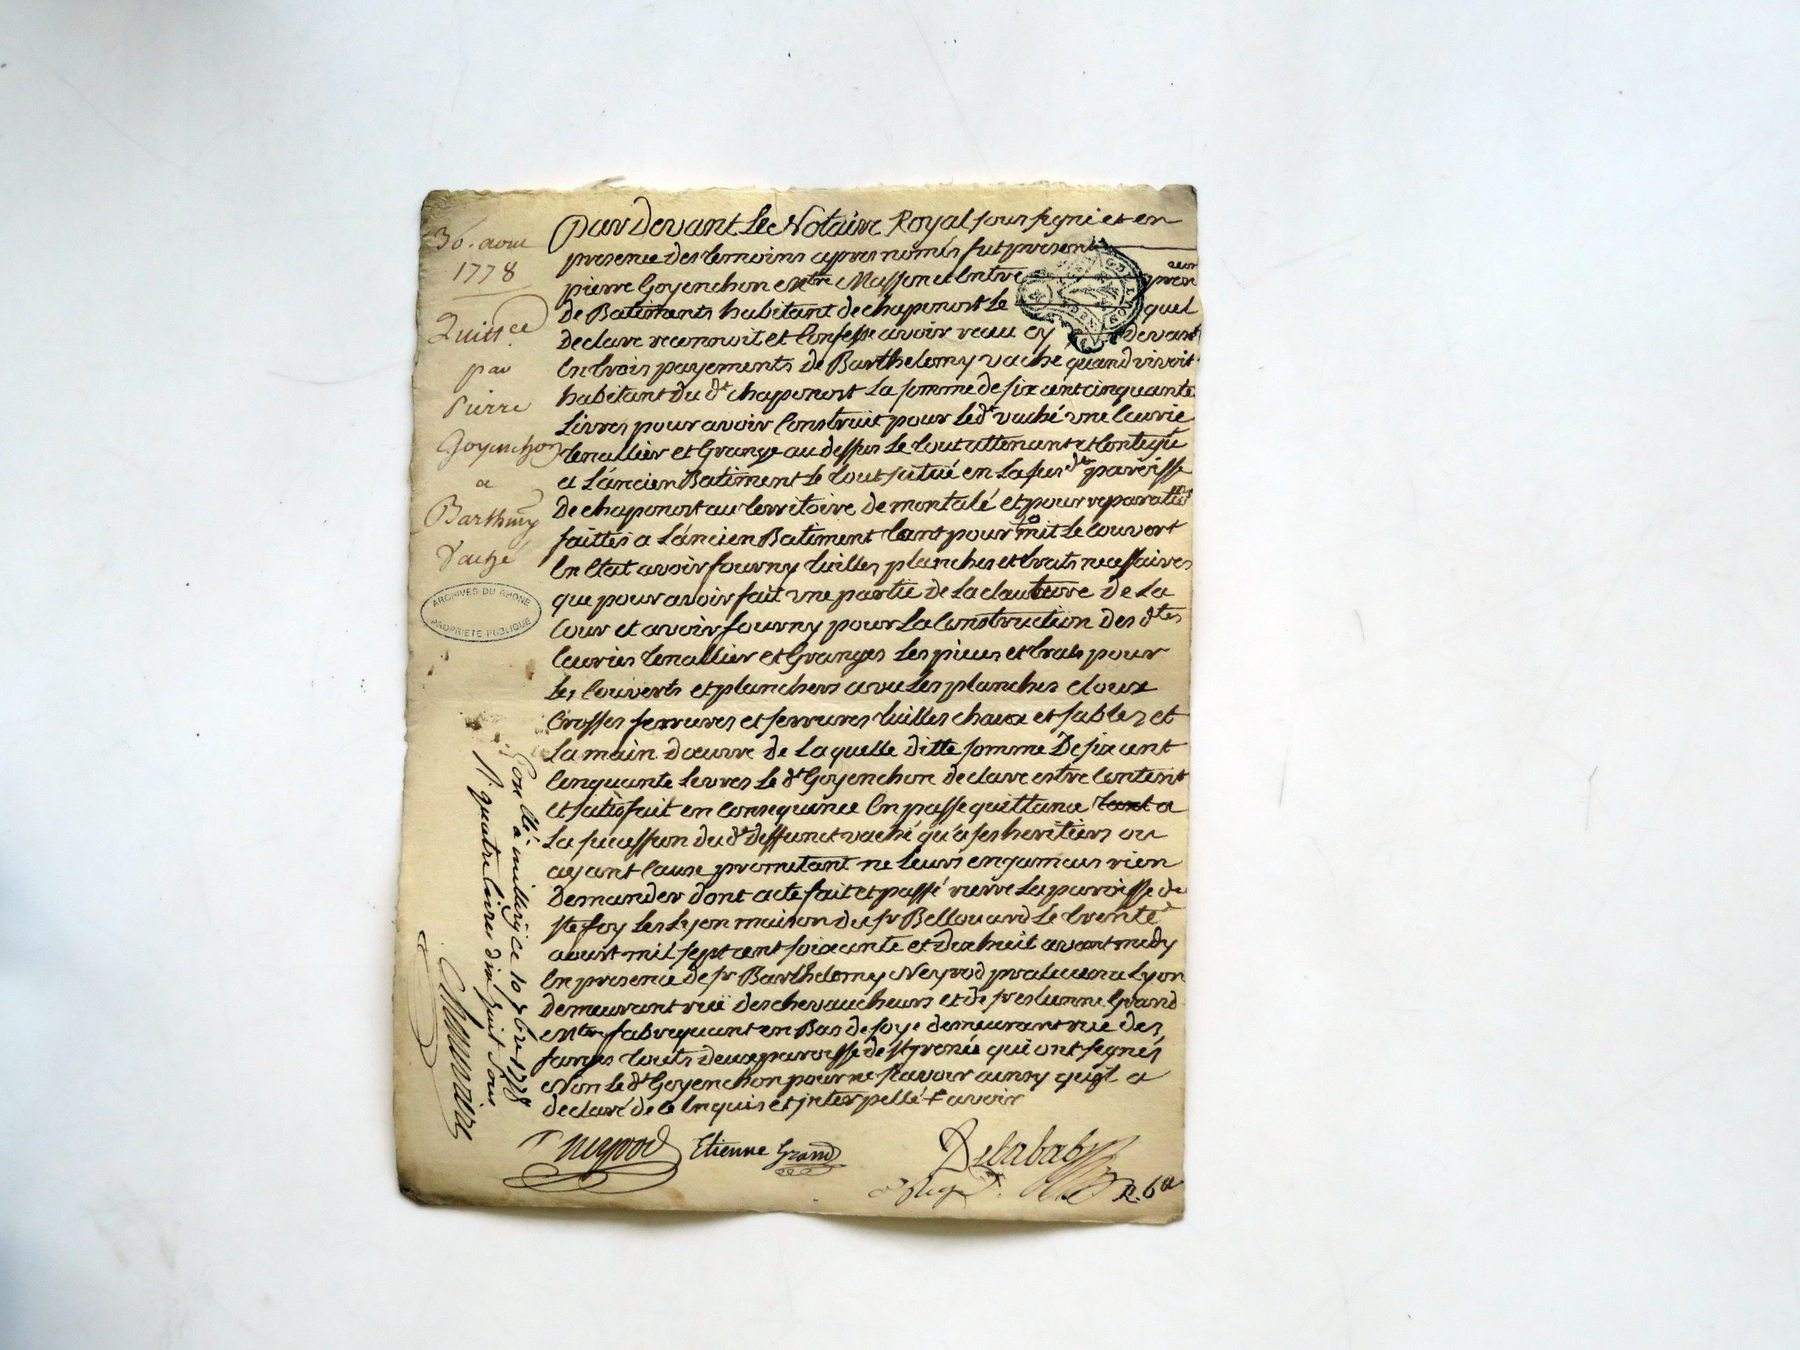 30. aout
1778
Quittce
par
Pierre
Goyenchon
a
Barthmy
Vaché
ARCHIVES DU RHONE
PROPRIETE PUBLIQUE
Par Devant Le Notaire Royal sous signé et en
presence des temoins apres només fut present
pierre Goyenchon Mtre Masson et Entre pren eur
de Batiments habitant de chaponost Le quel
declare reconnoit et Confesse avoir receu cy devant
En trois payements de Barthelemy vaché quand vivoit
habitant du dt chaponost La somme de six cent cinquante
Livres pour avoir Construit pour Le dt vaché une Ecurie
fenallier et Grange au dessus Le tout attenant et Contigue
a L'ancien Batiment Le tout situé en La sus dte paroisse
de chaponost au territoire de montalé et pour reparatns
faittes a L'ancien Batiment tant pour mit Le Couvert
En Etat avoir fourny tuilles planches et trats necessaires
que pour avoir fait une partie de La clauture de La
Cour et avoir fourny pour La Construction des dtes
Ecuries fenallier et Granges Les pieces et trats pour
Les Couverts et planchers avec Les planches cloux
Crosses ferrures et serrures tuilles chaux et sables et
La main d'œuvre de La quelle ditte somme De six cent
Cinquante Livres Le dt Goyenchon declare estre Content
et satisfait en Consequence En passe quittance tant a
La succession du dt deffunct vaché qu'a ses heritiers ou
ayant Cause prometant ne Leurs en jamais rien
Demander dont acte fait et passé rierre La paroisse de
Ste foy Les Lyon maison du sr Bellouard Le trente
aoust mil sept cent soixante et Dix huit avant midy
En presence de sr Barthelemy Neyrod praticien a Lyon
Demeurant rue des chevaucheurs et de sr estienne Grand
Mtre fabrequant en Bas de soye demeurant rue des
farges touts deux paroisse de st yrenée qui ont signés
Non Le dt Goyenchon pour ne scavoir ainsy qu'il a
declaré de ce Enquis et jnterpellé favoir
Neyrod Etienne Grand
Delabaty
R. 6
Con llé a millery ce 10 7bre 1778
R quatre livres dix huit sous